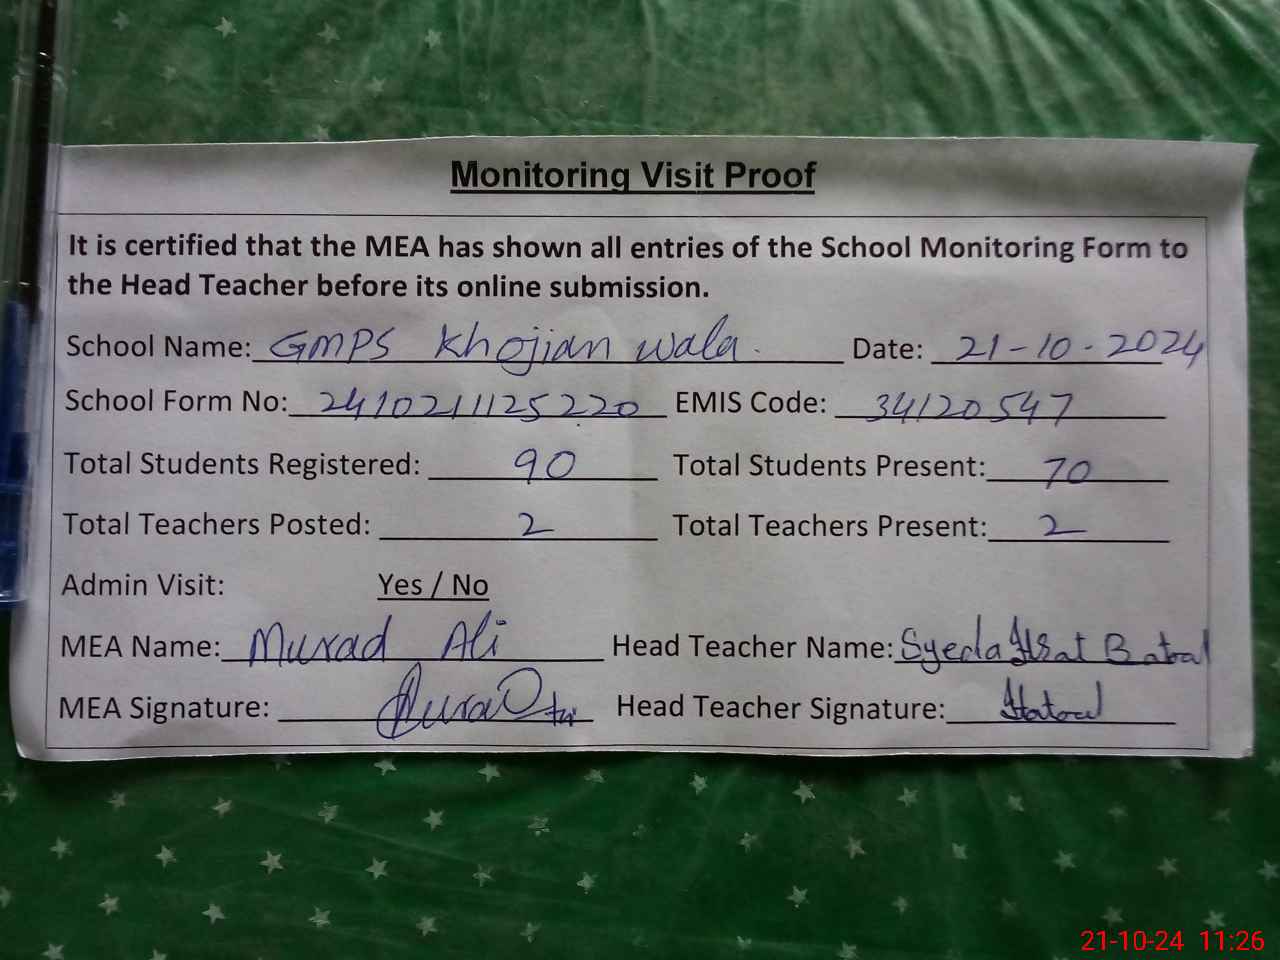 Monitoring Visit Proof
It is certified that the MEA has shown all entries of the School Monitoring Form to
the Head Teacher before its online submission.
School Name: GMPS Khojian wala. Date: 21-10-2024
School Form No: 2410211125220 EMIS Code: 34120547
Total Students Registered: 90 Total Students Present: 70
Total Teachers Posted: 2 Total Teachers Present: 2
Admin Visit: Yes / No
MEA Name: Murad Ali Head Teacher Name: Syeda Batool
MEA Signature: Head Teacher Signature:
21-10-24 11:26